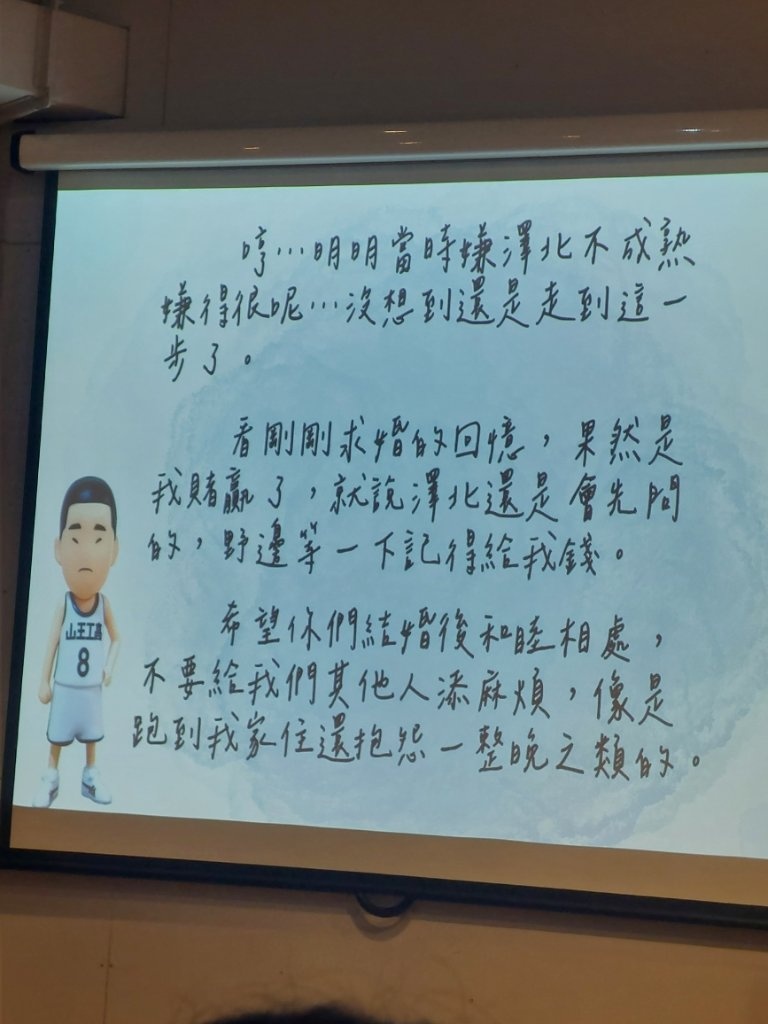 哼…明明當時嫌澤北不成熟
嫌得很呢…沒想到還是走到這一
步了。
看剛剛求婚的回憶,果然是
我賭贏了,就說澤北還是會先問
的,野邊等一下記得給我錢。
希望你們結婚後和睦相處,
不要給我們其他人添麻煩,像是
跑到我家住還抱怨一整晚之類的。
山王工高
8